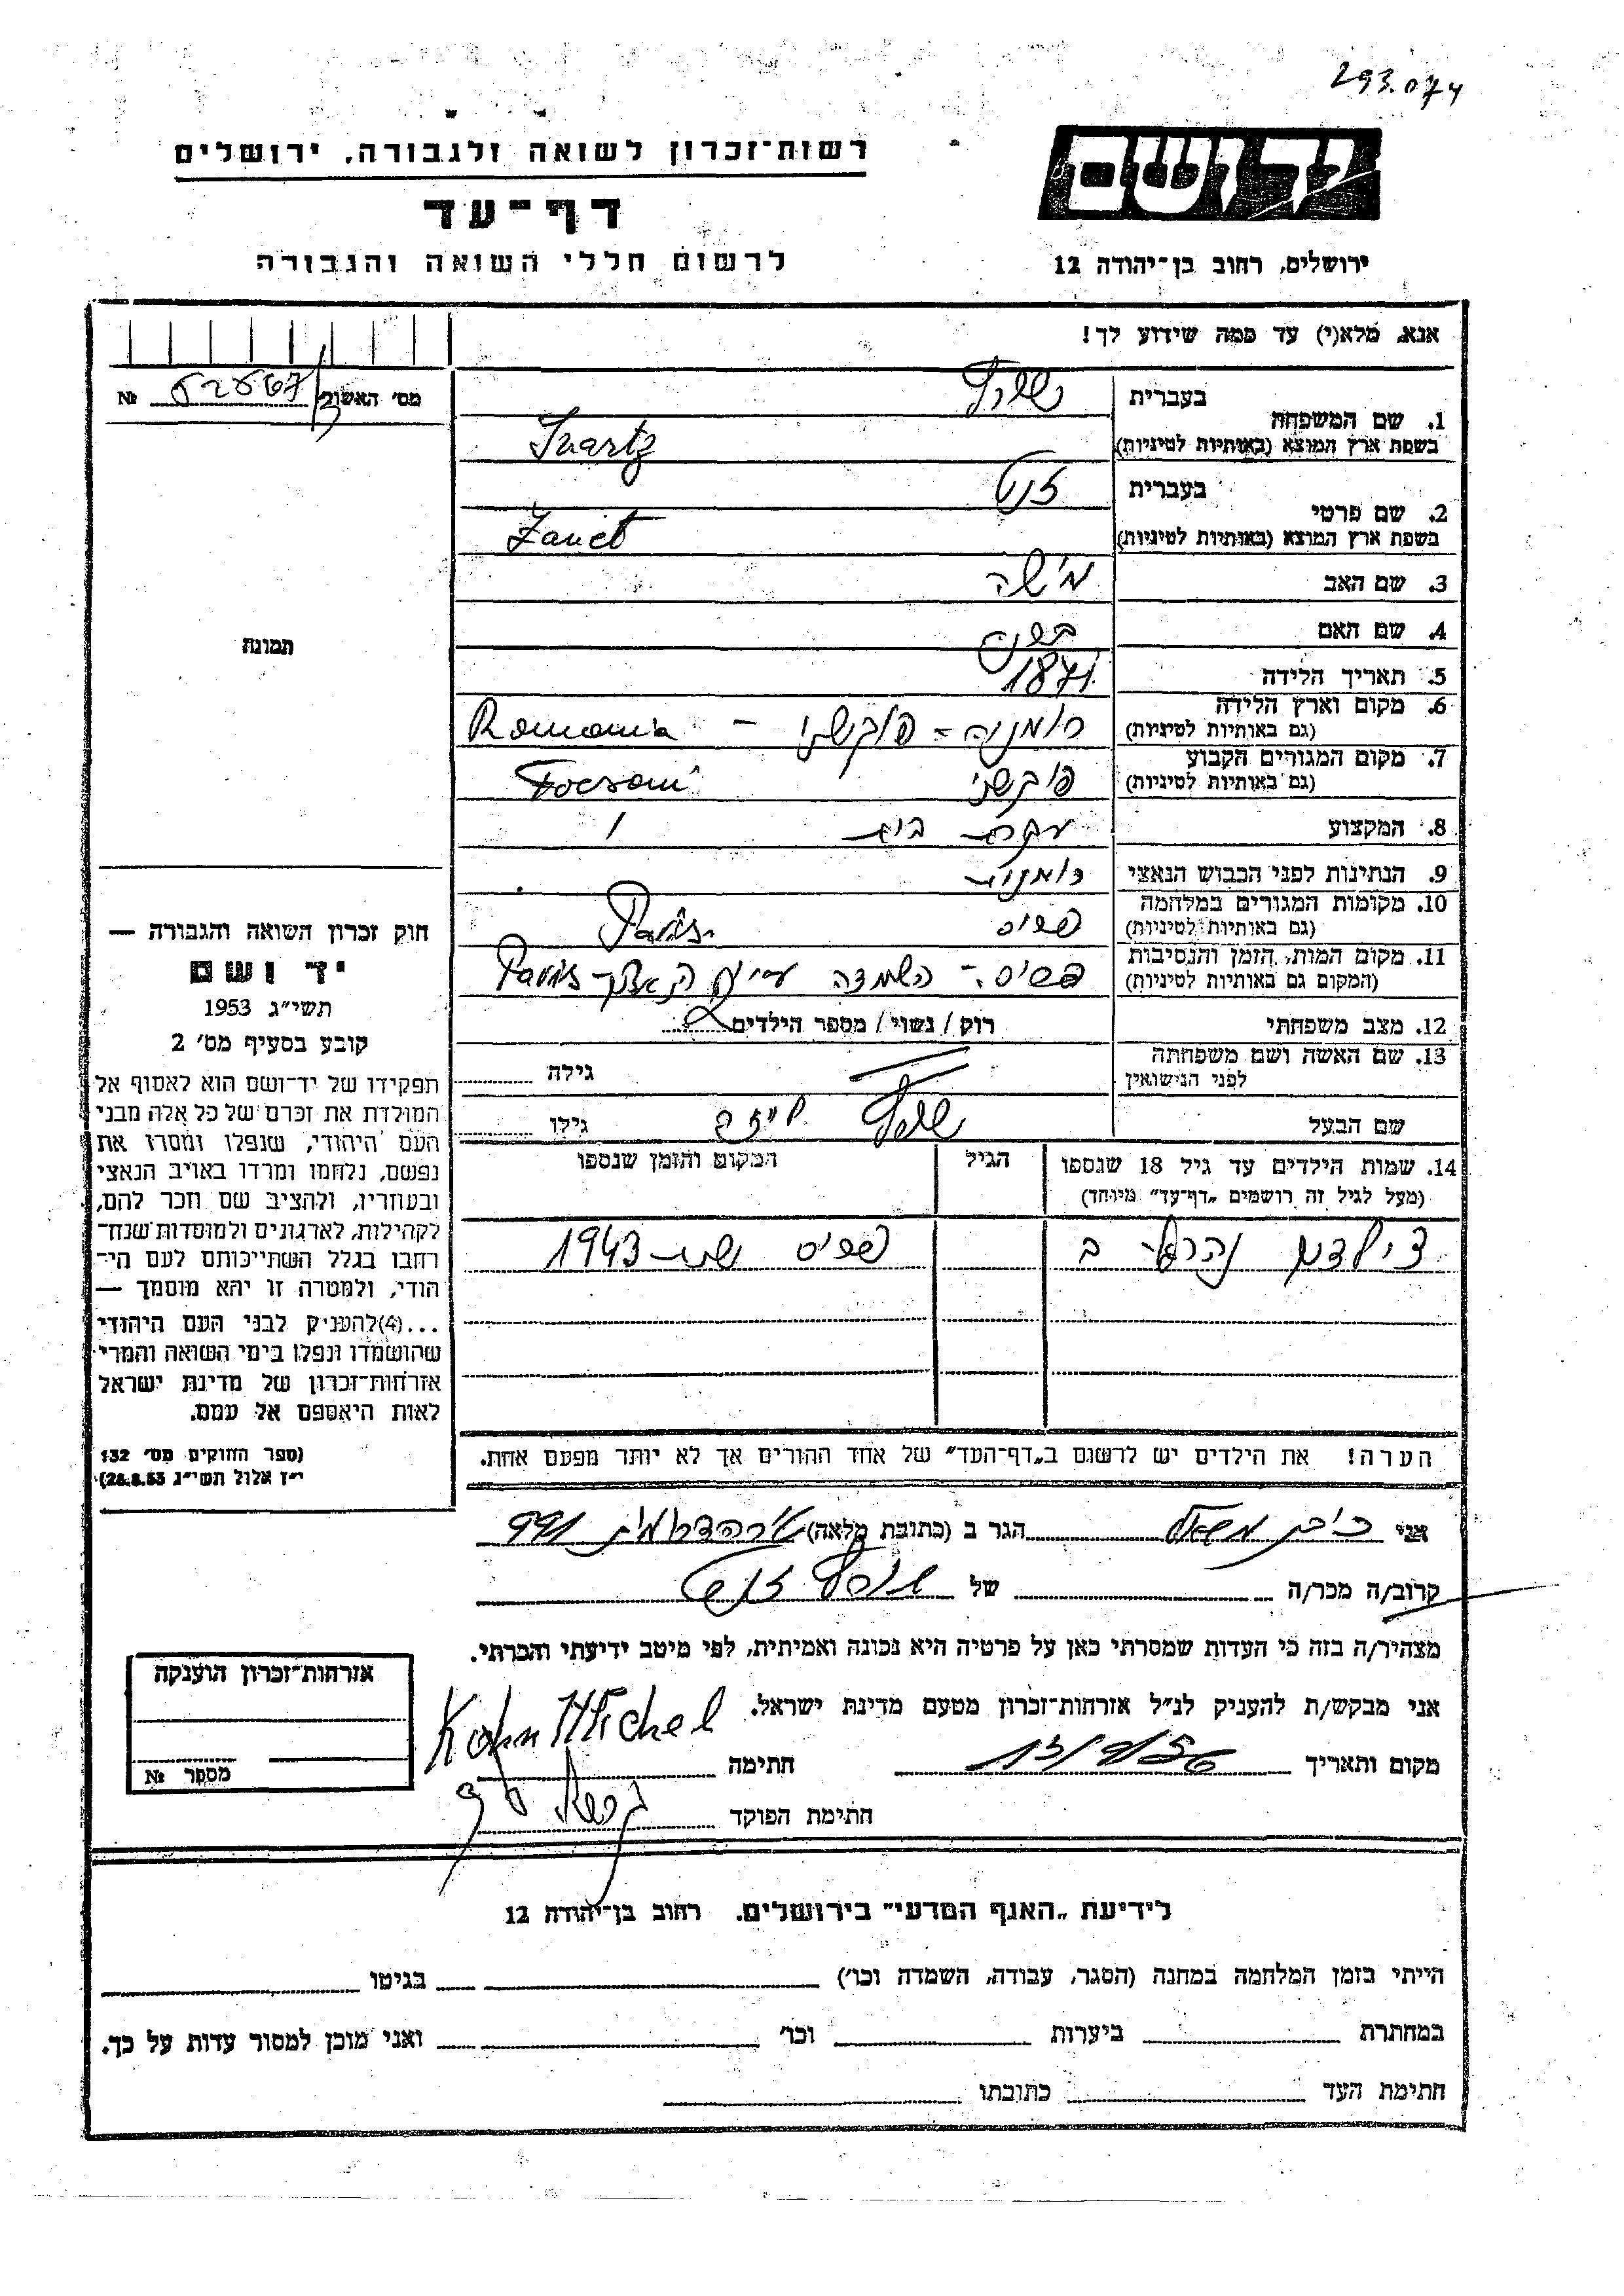 293.074
רשות־זכרון לשואה ולגבורה, ירושלים
דף־עד
לרשום חללי השואה והגבורה
יד ושם
ירושלים, רחוב בן־יהודה 12
אנא, מלא(י) עד כמה שידוע לך!
מס' האשור № 52567
1. שם המשפחה בעברית שורץ
בשפת ארץ המוצא (באותיות לטיניות) Svartz
2. שם פרטי בעברית זנט
בשפת ארץ המוצא (באותיות לטיניות) Zanet
3. שם האב
4. שם האם
5. תאריך הלידה 1871
6. מקום וארץ הלידה (גם באותיות לטיניות) רומניה - פוקשני - Romania
7. מקום המגורים הקבוע (גם באותיות לטיניות) פוקשני Focsani
8. המקצוע עקרת בית
9. הנתינות לפני הכבוש הנאצי רומנית
10. מקומות המגורים במלחמה (גם באותיות לטיניות) פריס Paris
11. מקום המות, הזמן והנסיבות (המקום גם באותיות לטיניות) פריס - השמדה Paris
12. מצב משפחתי רוק / נשוי / מספר הילדים 2
13. שם האשה ושם משפחתה לפני הנישואין גילה
שם הבעל שורץ גילו
14. שמות הילדים עד גיל 18 שנספו הגיל המקום והזמן שנספו
(מעל לגיל זה רושמים „דף־עד" מיוחד)
פריס שנת 1943
הערה! את הילדים יש לרשום ב„דף־העד" של אחד ההורים אך לא יותר מפעם אחת.
תמונה
חוק זכרון השואה והגבורה —
יד ושם
תשי"ג 1953
קובע בסעיף מס' 2
תפקידו של יד־ושם הוא לאסוף אל
המולדת את זכרם של כל אלה מבני
העם היהודי, שנפלו ומסרו את
נפשם, נלחמו ומרדו באויב הנאצי
ובעוזריו, ולהציב שם וזכר להם,
לקהילות, לארגונים ולמוסדות שנח־
רחבו בגלל השתייכותם לעם הי־
הודי, ולמטרה זו יהא מוסמך —
...(4)להעניק לבני העם היהודי
שהושמדו ונפלו בימי השואה והמרי
אזרחות־זכרון של מדינת ישראל
לאות היאספם אל עמם.
(ספר החוקים מס' 132
י"ז אלול תשי"ג 28.8.53)
אני הגר ב (כתובת מלאה) 991
קרוב/ה מכר/ה של שורץ זנט
מצהיר/ה בזה כי העדות שמסרתי כאן על פרטיה היא נכונה ואמיתית, לפי מיטב ידיעתי והכרתי.
אני מבקש/ת להעניק לנ"ל אזרחות־זכרון מטעם מדינת ישראל.
מקום ותאריך 13/9/56 חתימה Kohn Michel
חתימת הפוקד
אזרחות־זכרון הוענקה
מספר №
לידיעת „האגף המדעי" בירושלים. רחוב בן־יהודה 12
הייתי בזמן המלחמה במחנה (הסגר, עבודה, השמדה וכו') בגיטו
במחתרת ביערות וכו' ואני מוכן למסור עדות על כך.
חתימת העד כתובתו